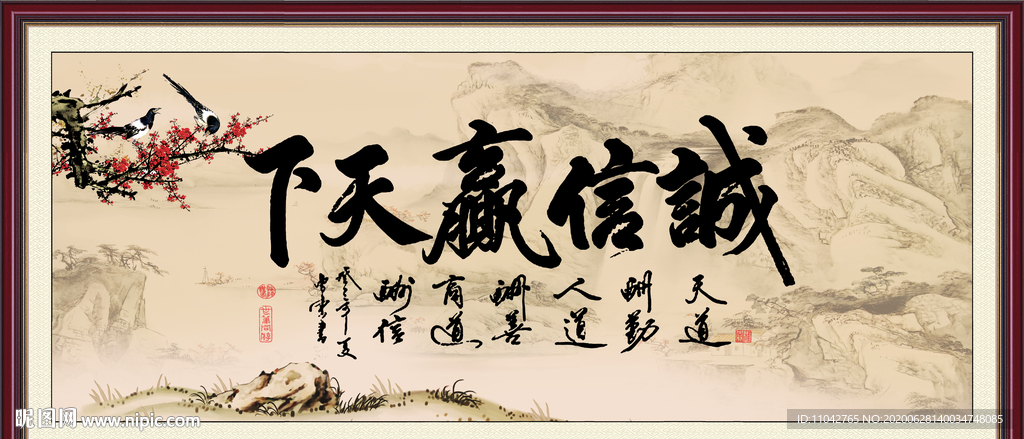 誠信贏天下
天道
酬勤
人道
酬善
商道
酬信
昵图网 www.nipic.com
ID:11042765 NO:20200628140034748085